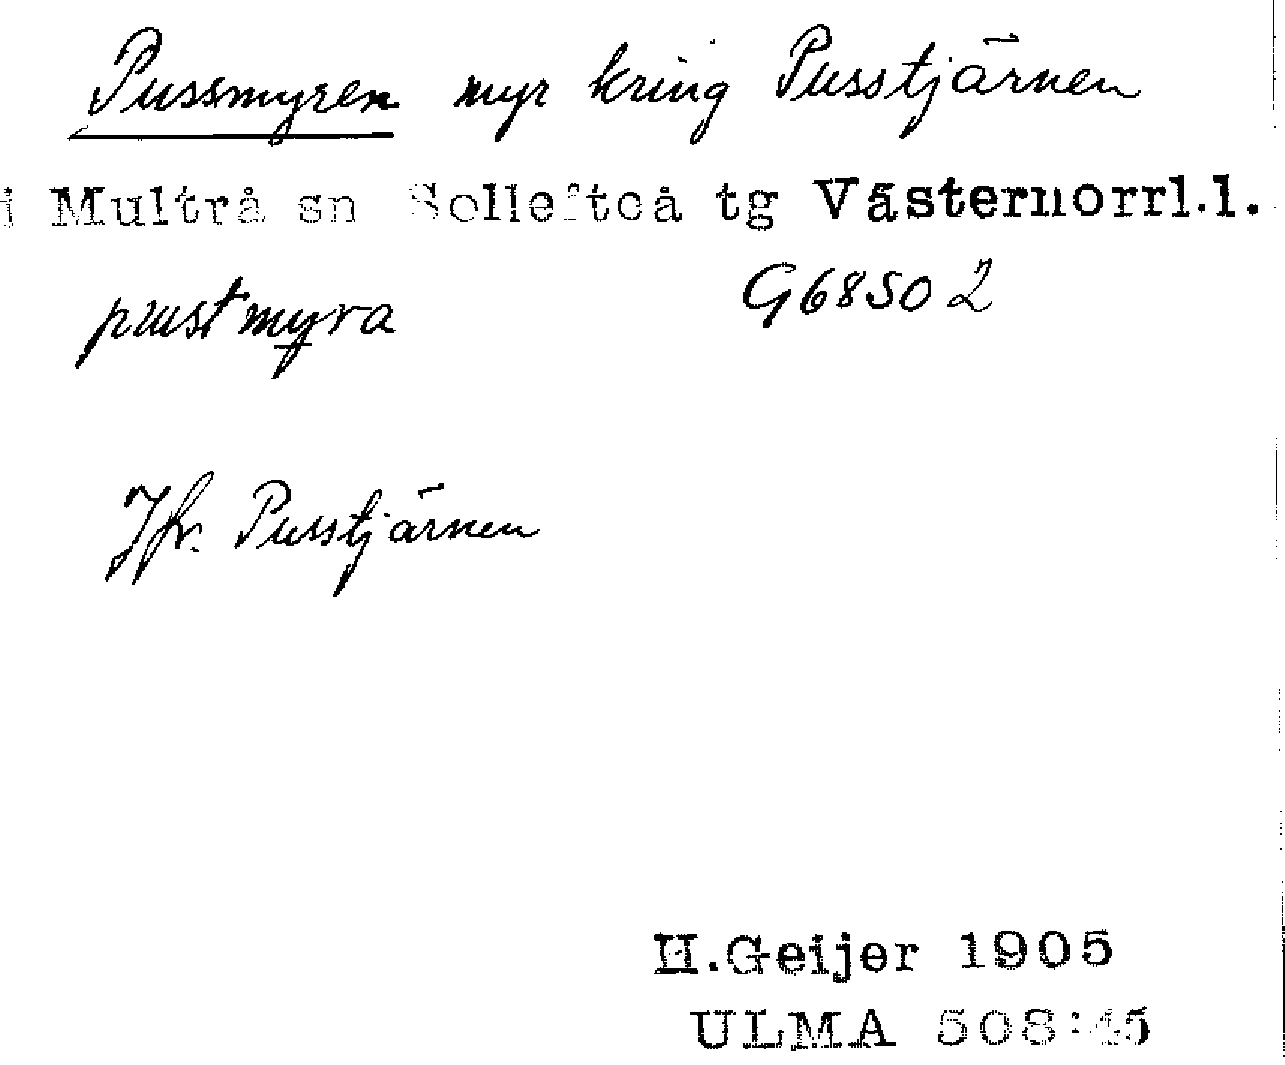 Pussmyren myr kring Pusstjärnen
i Multrå sn Sollefteå tg Västernorrl.l.
pusstmyra G68502
Jfr. Pusstjärnen
H.Geijer 1905
ULMA 508:45